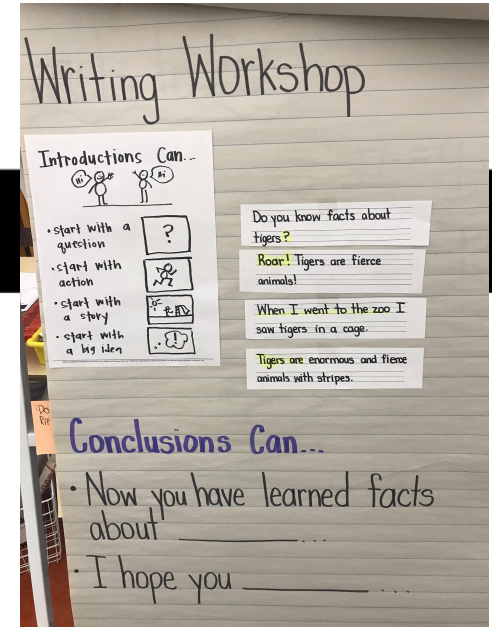 Writing Workshop
Introductions Can...
Hi
Hi
• start with a
question
?
• start with
action
• start with
a story
• start with
a big idea
!
Do you know facts about
tigers?
Roar! Tigers are fierce
animals!
When I went to the zoo I
saw tigers in a cage.
Tigers are enormous and fierce
animals with stripes.
Conclusions Can...
• Now you have learned facts
about ________...
• I hope you ________ ....